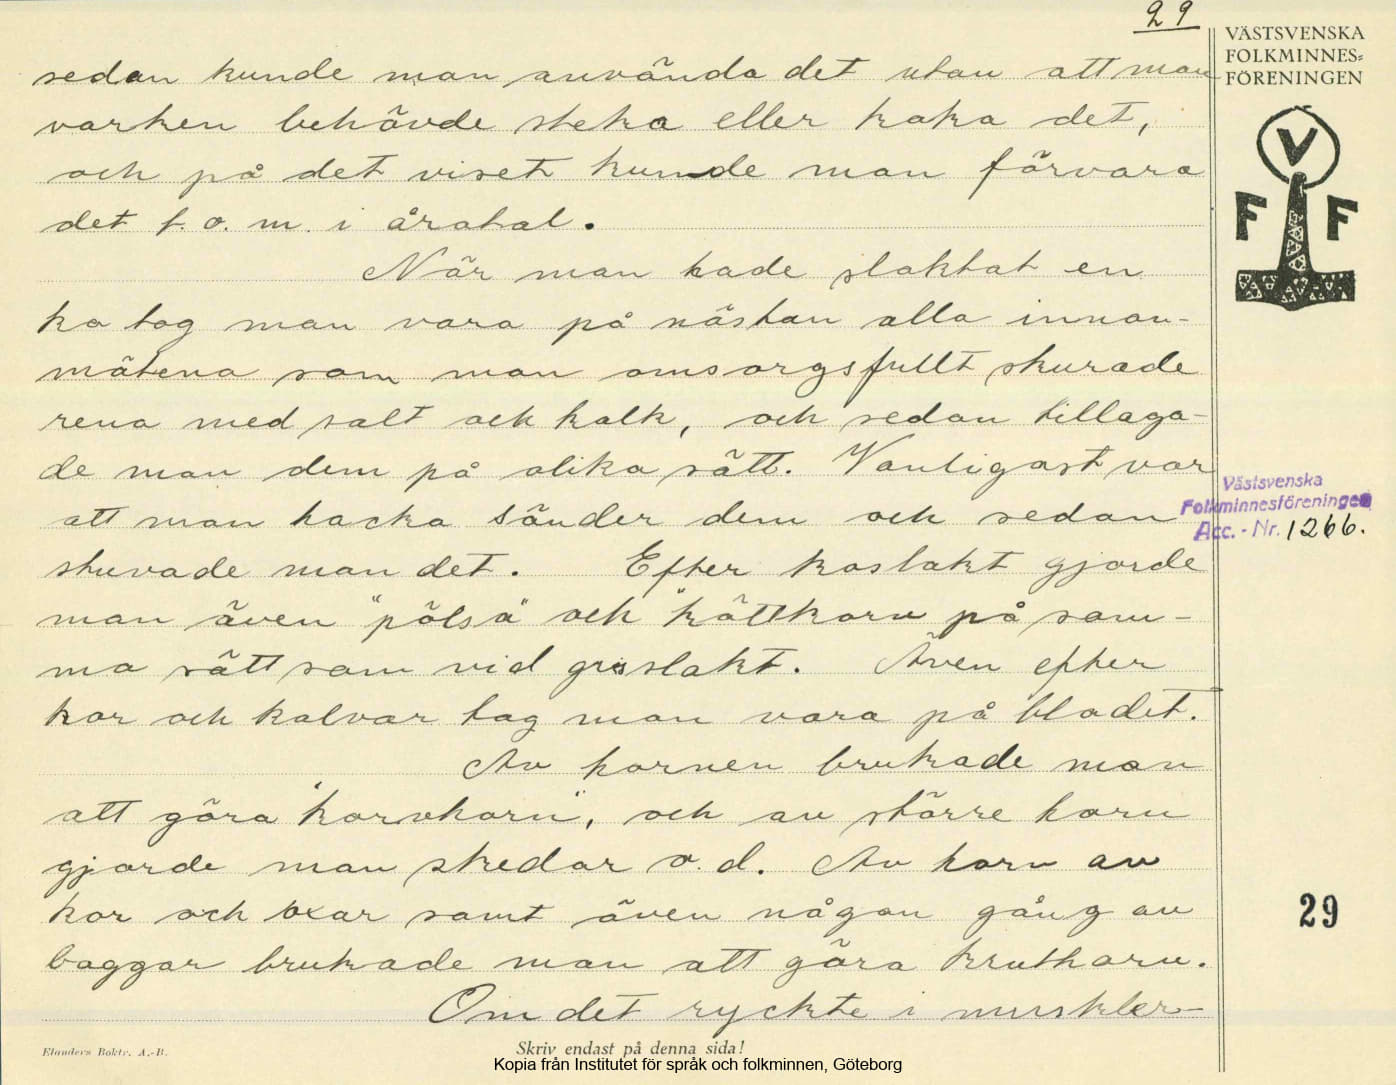 29
VÄSTSVENSKA
FOLKMINNES=
FÖRENINGEN
V
F F
sedan kunde man använda det utan att man
varken behövde steka eller koka det,
och på det viset kunde man förvara
det t. o. m. i åratal.
När man hade slaktat en
ko tog man vara på nästan alla innan-
mätena som man omsorgsfullt skurade
rena med salt och kalk, och sedan tillaga-
de man dem på olika sätt. Vanligast var
att man hacka sönder dem och sedan
stuvade man det. Efter koslakt gjorde
man även "pölsa" och "köttkorv på sam-
ma sätt som vid grisslakt. Även efter
kor och kalvar tog man vara på blodet.
Av hornen brukade man
att göra "korvhorn", och av större horn
gjorde man skedar o. d. Av horn av
kor och oxar samt även någon gång av
baggar brukade man att göra kruthorn.
Om det ryckte i muskler-
Västsvenska
Folkminnesföreningen
Acc. - Nr. 1266.
29
Elanders Boktr. A.-B.
Skriv endast på denna sida!
Kopia från Institutet för språk och folkminnen, Göteborg